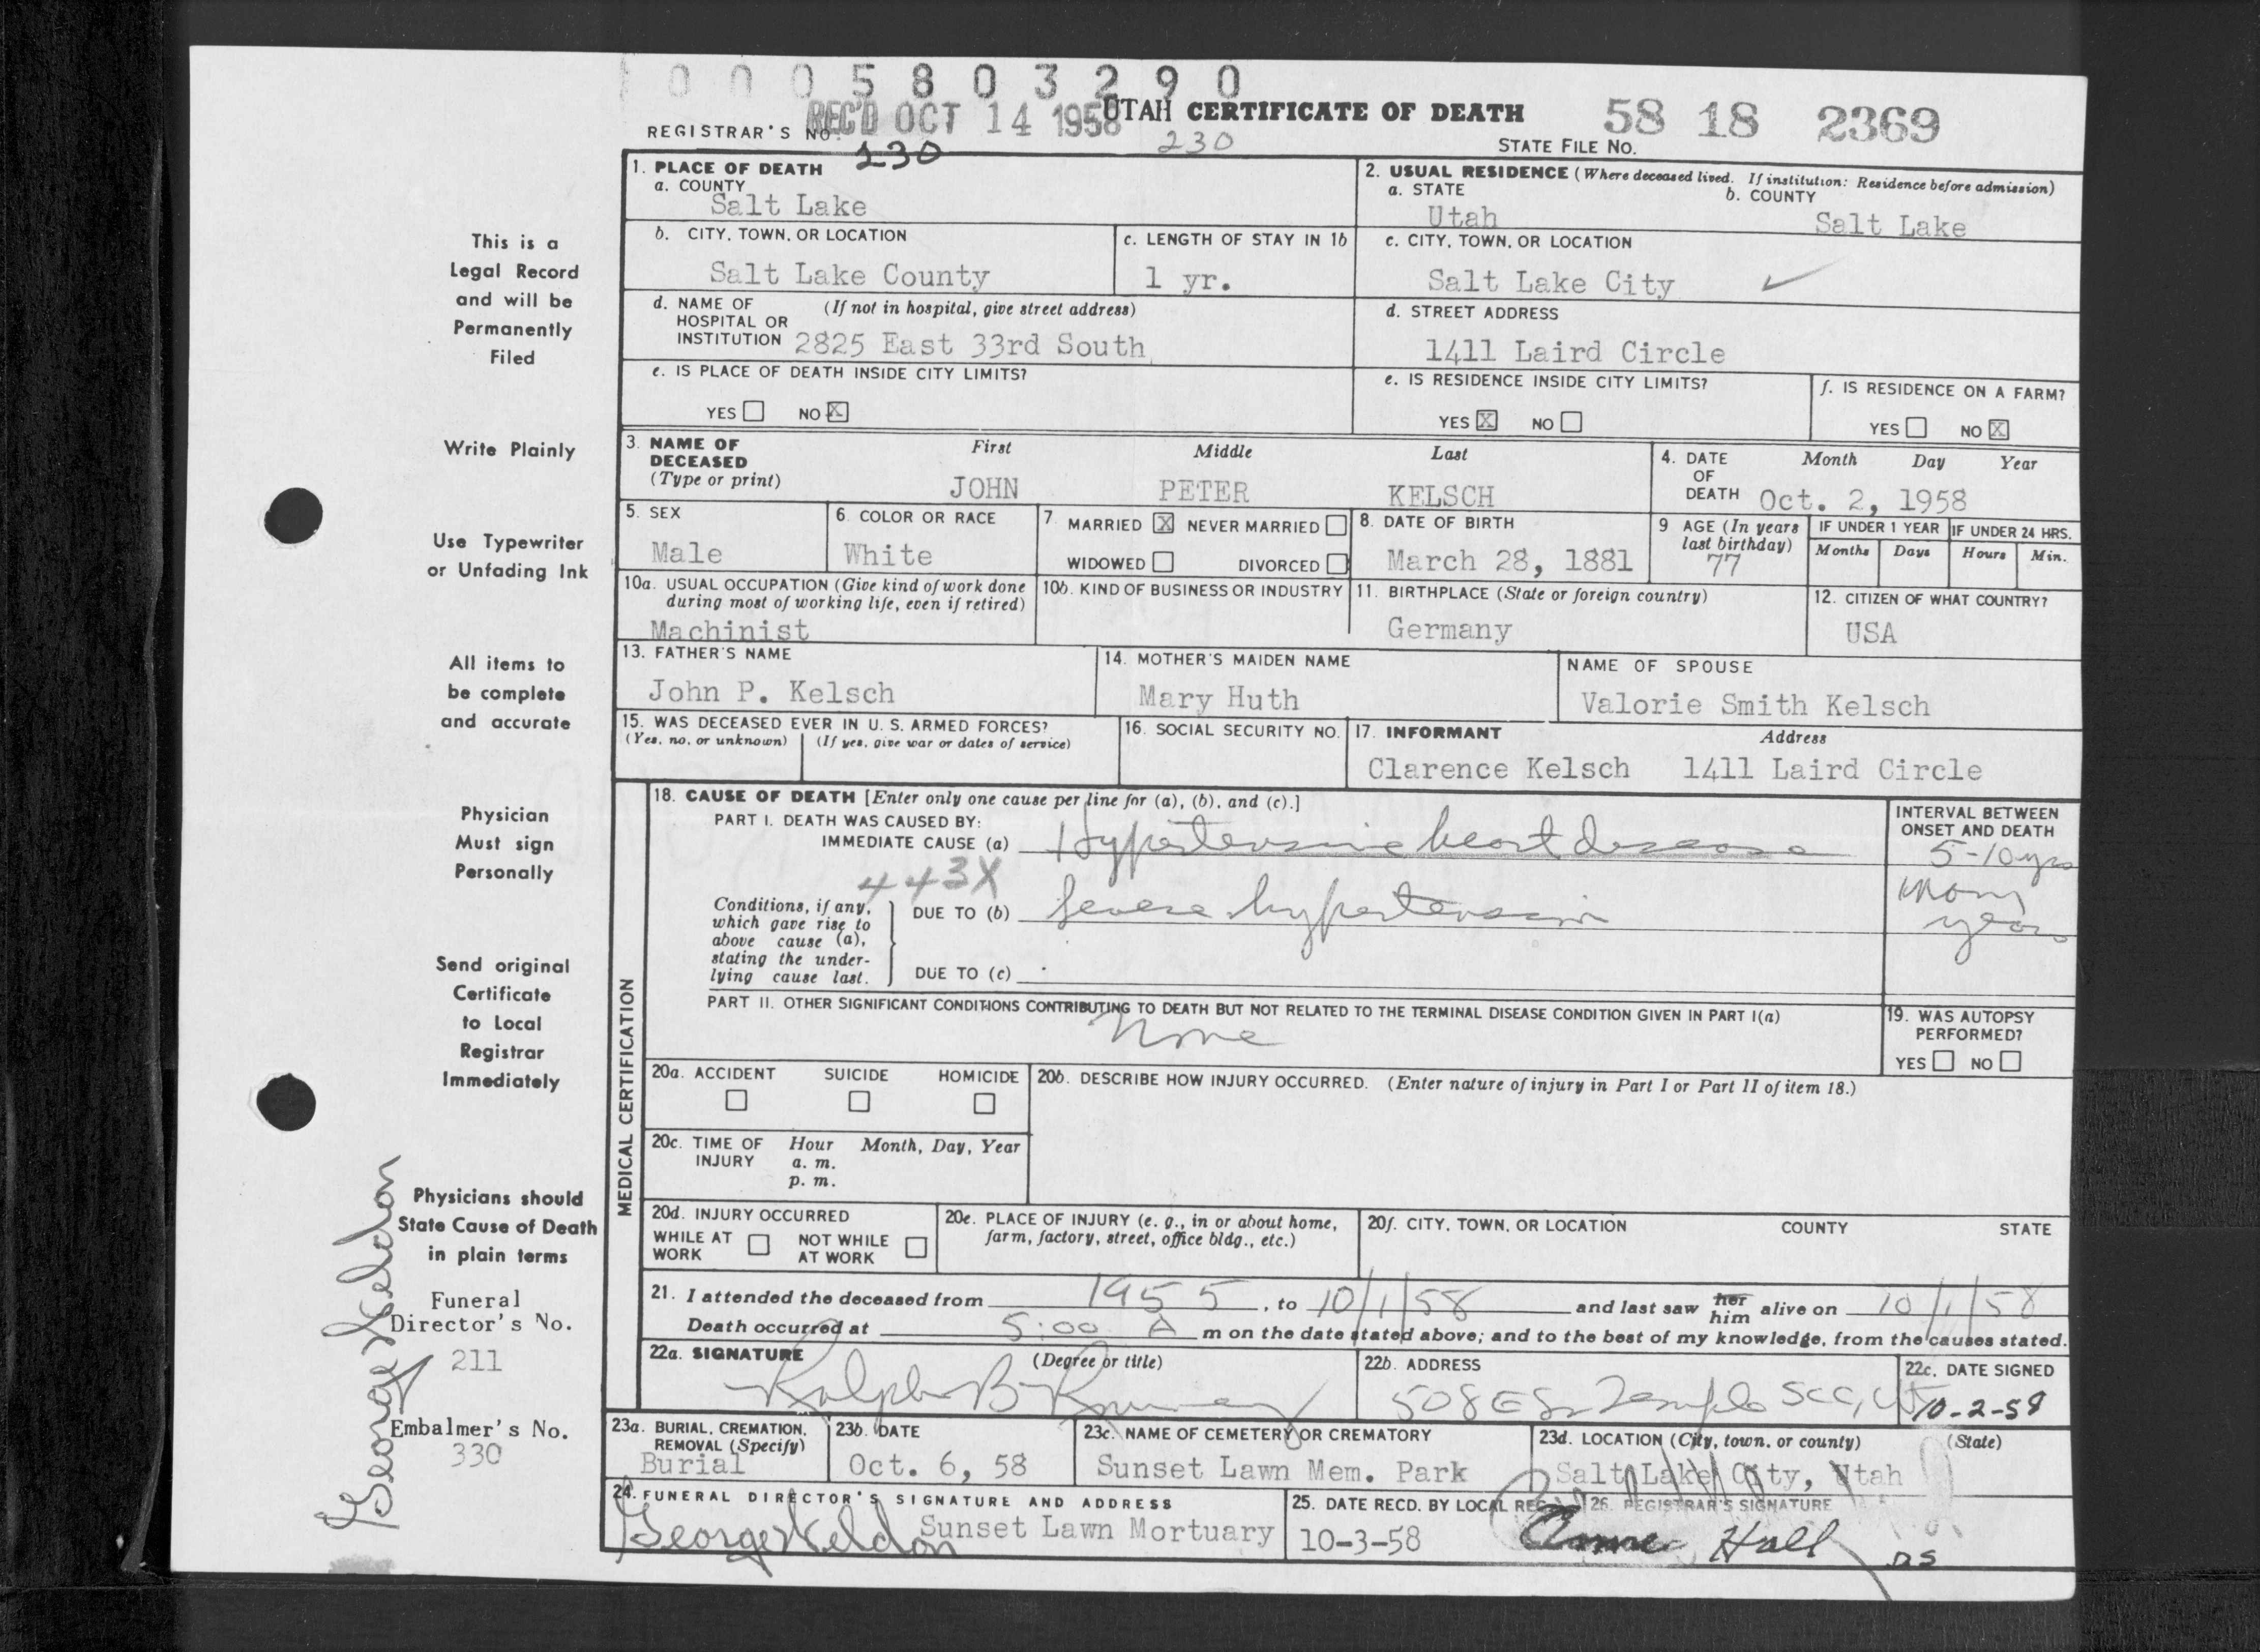 0 0 0 5 8 0 3 2 9 0
REC'D OCT 14 1958
UTAH CERTIFICATE OF DEATH
58 18 2369
REGISTRAR'S NO.
230
230
STATE FILE NO.
1. PLACE OF DEATH
a. COUNTY
Salt Lake
2. USUAL RESIDENCE (Where deceased lived. If institution: Residence before admission)
a. STATE
b. COUNTY
Utah
Salt Lake
b. CITY, TOWN, OR LOCATION
Salt Lake County
c. LENGTH OF STAY IN 1b
1 yr.
c. CITY, TOWN, OR LOCATION
Salt Lake City
d. NAME OF (If not in hospital, give street address)
HOSPITAL OR
INSTITUTION 2825 East 33rd South
d. STREET ADDRESS
1411 Laird Circle
e. IS PLACE OF DEATH INSIDE CITY LIMITS?
YES NO X
e. IS RESIDENCE INSIDE CITY LIMITS?
YES X NO
f. IS RESIDENCE ON A FARM?
YES NO X
3. NAME OF First Middle Last
DECEASED
(Type or print)
JOHN PETER KELSCH
4. DATE Month Day Year
OF
DEATH Oct. 2, 1958
5. SEX
Male
6. COLOR OR RACE
White
7. MARRIED X NEVER MARRIED
WIDOWED DIVORCED
8. DATE OF BIRTH
March 28, 1881
9 AGE (In years
last birthday)
77
IF UNDER 1 YEAR
Months Days
IF UNDER 24 HRS.
Hours Min.
10a. USUAL OCCUPATION (Give kind of work done
during most of working life, even if retired)
Machinist
10b. KIND OF BUSINESS OR INDUSTRY
11. BIRTHPLACE (State or foreign country)
Germany
12. CITIZEN OF WHAT COUNTRY?
USA
13. FATHER'S NAME
John P. Kelsch
14. MOTHER'S MAIDEN NAME
Mary Huth
NAME OF SPOUSE
Valorie Smith Kelsch
15. WAS DECEASED EVER IN U. S. ARMED FORCES?
(Yes, no, or unknown) (If yes, give war or dates of service)
16. SOCIAL SECURITY NO.
17. INFORMANT Address
Clarence Kelsch 1411 Laird Circle
18. CAUSE OF DEATH [Enter only one cause per line for (a), (b), and (c).]
PART I. DEATH WAS CAUSED BY:
IMMEDIATE CAUSE (a) Hypertensive heart disease
INTERVAL BETWEEN
ONSET AND DEATH
5-10 yrs
443X
Conditions, if any,
which gave rise to
above cause (a),
stating the under-
lying cause last.
DUE TO (b) Severe hypertension
many
years
DUE TO (c)
PART II. OTHER SIGNIFICANT CONDITIONS CONTRIBUTING TO DEATH BUT NOT RELATED TO THE TERMINAL DISEASE CONDITION GIVEN IN PART I(a)
None
19. WAS AUTOPSY
PERFORMED?
YES NO
20a. ACCIDENT SUICIDE HOMICIDE
20b. DESCRIBE HOW INJURY OCCURRED. (Enter nature of injury in Part I or Part II of item 18.)
20c. TIME OF Hour Month, Day, Year
INJURY a. m.
p. m.
20d. INJURY OCCURRED
WHILE AT NOT WHILE
WORK AT WORK
20e. PLACE OF INJURY (e. g., in or about home,
farm, factory, street, office bldg., etc.)
20f. CITY, TOWN, OR LOCATION COUNTY STATE
21. I attended the deceased from 1955, to 10/1/58 and last saw her him alive on 10/1/58
Death occurred at 5:00 A m on the date stated above; and to the best of my knowledge, from the causes stated.
22a. SIGNATURE (Degree or title)
Ralph B
22b. ADDRESS
508 E So Temple SLC, Ut
22c. DATE SIGNED
10-2-58
23a. BURIAL, CREMATION,
REMOVAL (Specify)
Burial
23b. DATE
Oct. 6, 58
23c. NAME OF CEMETERY OR CREMATORY
Sunset Lawn Mem. Park
23d. LOCATION (City, town, or county) (State)
Salt Lake City, Utah
24. FUNERAL DIRECTOR'S SIGNATURE AND ADDRESS
George Weldon Sunset Lawn Mortuary
25. DATE RECD. BY LOCAL REG.
10-3-58
26. REGISTRAR'S SIGNATURE
Anne Hall
DS
MEDICAL CERTIFICATION
This is a
Legal Record
and will be
Permanently
Filed
Write Plainly
Use Typewriter
or Unfading Ink
All items to
be complete
and accurate
Physician
Must sign
Personally
Send original
Certificate
to Local
Registrar
Immediately
Physicians should
State Cause of Death
in plain terms
Funeral
Director's No.
211
Embalmer's No.
330
George Weldon